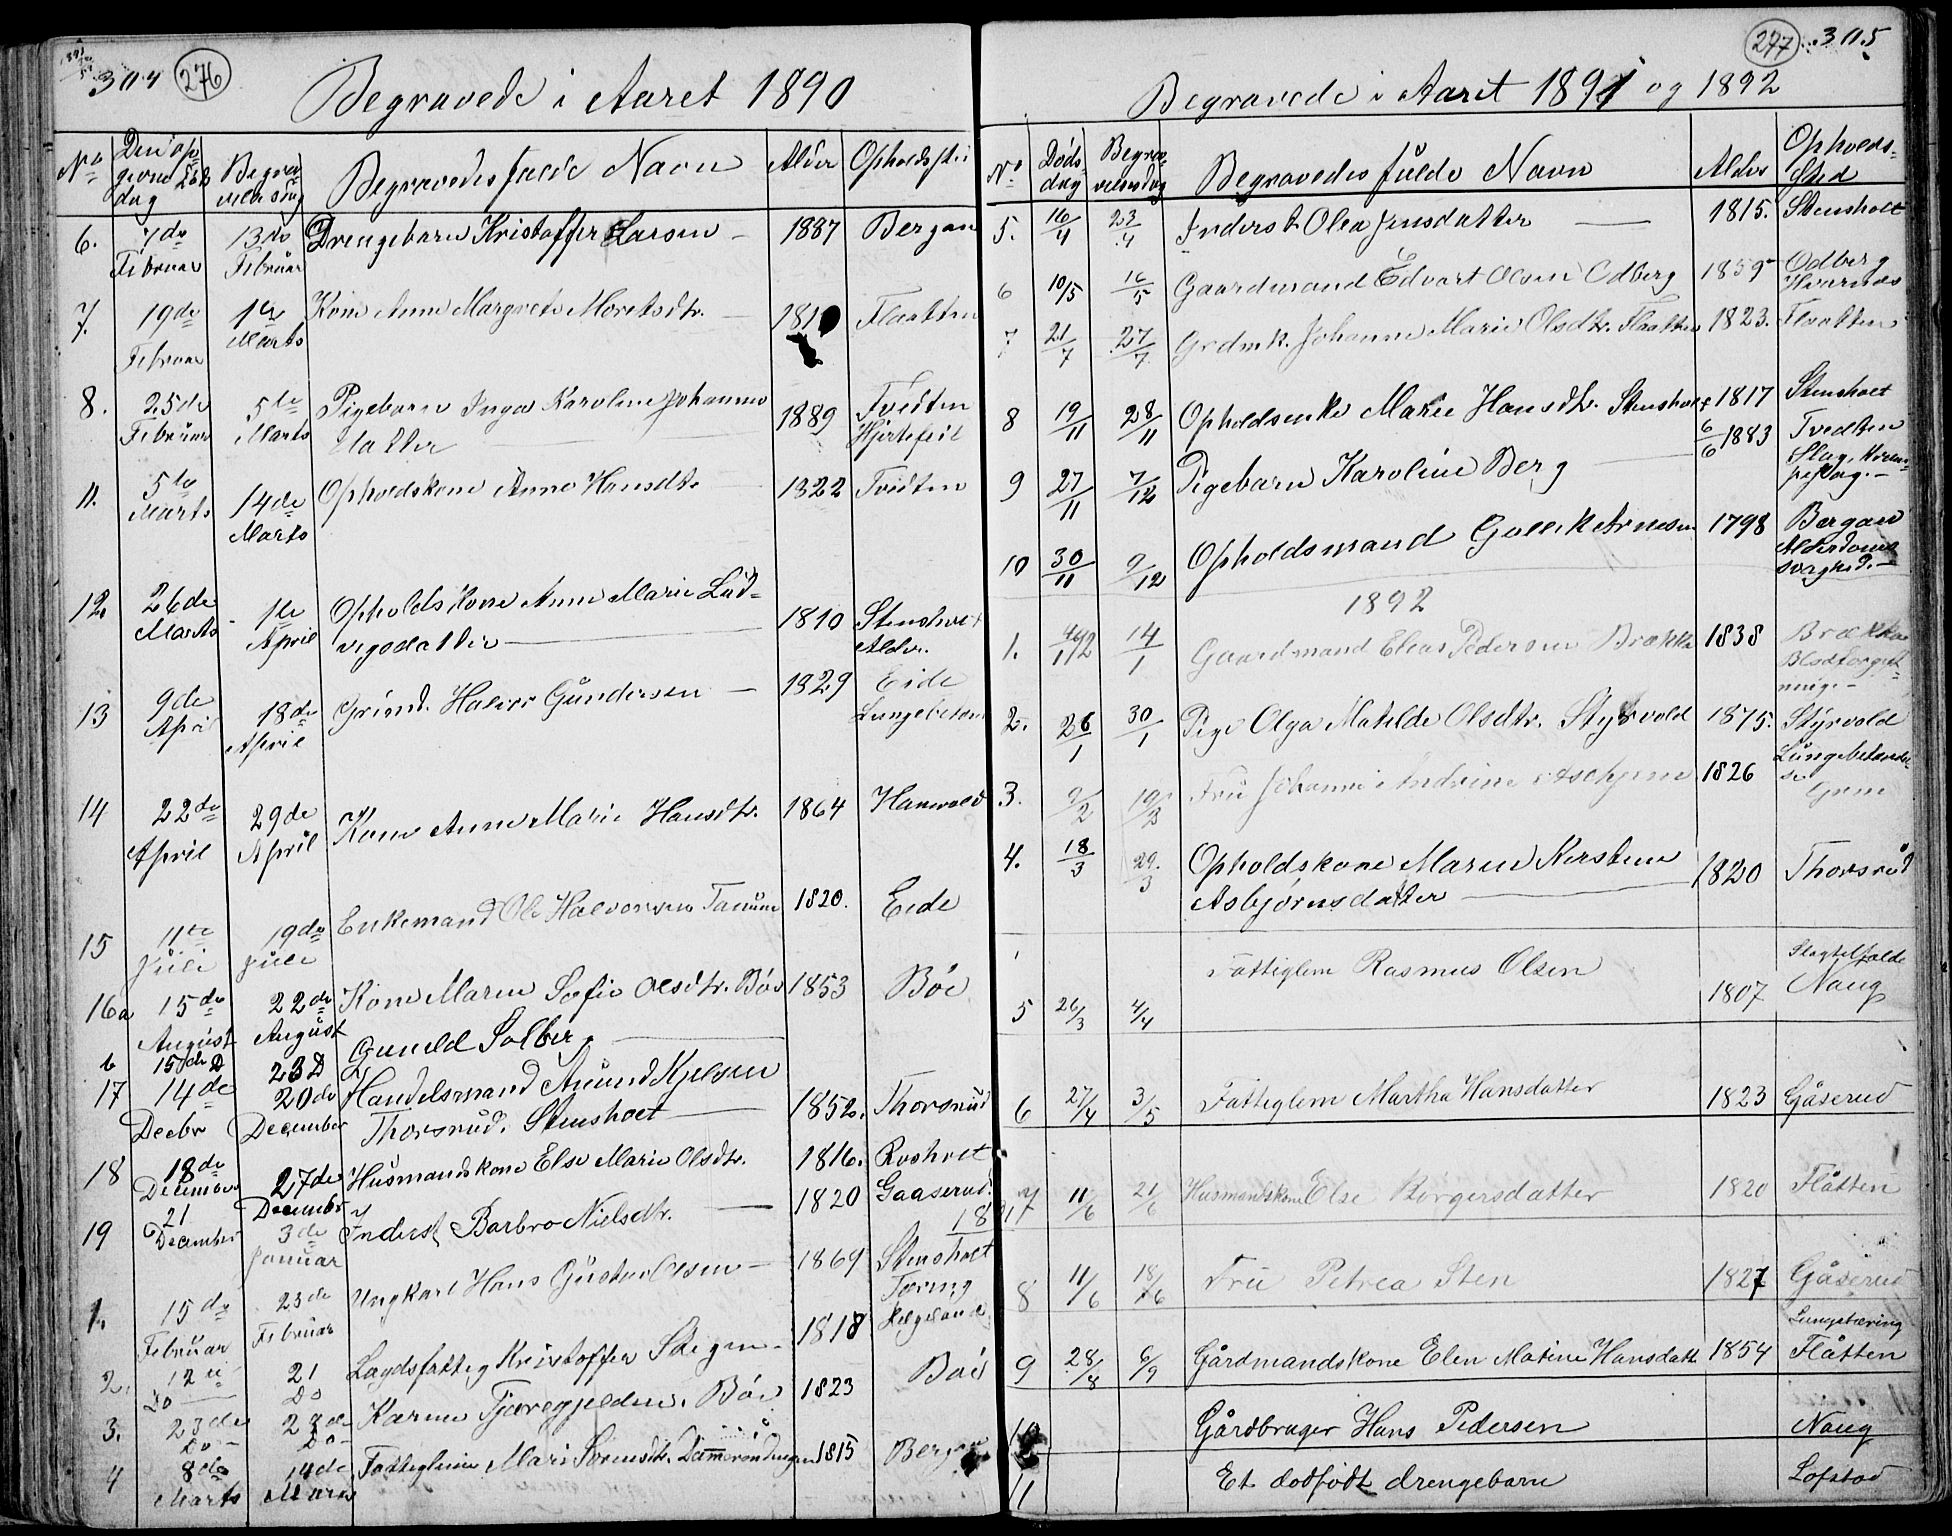 304 276
Begravede i Aaret 1890
No Begravedes fulde Navn Alder
6. 7de Februar 13de Februar Drengebarn Kristoffer Larsen 1887 Bergan
7. 19de Februar 1ste Marts Kone Anne Margrete Moretsdtr. Flaatten
8. 25de Februar 5te Marts Pigebarn Inga Karoline Johannes 1889 Tvedten
datter
11. 5te Marts 14de Marts Opholdskone Anne Hansdtr 1822 Tvedten
12. 26de Marts 1ste April Opholdskone Anne Marie Lud= 1810 Stensholt
vigsdatter Alder.
13 9de April 18de April Grbmd. Halvor Gundersen 1829 Eide
14 22de April 29de April Kone Anne Marie Hansdtr. 1864 Hanevold
15 11te Juli 19de Juli Enkemand Ole Halvorsen Tanum 1820. Eide
16a 15de August 22de August Kone Maren Sofie Olsdtr. Böe 1853 Böe
b 15de D 23 D Guneld Solberg
17 14de Decbr 20de December Handelsmand Amund Kjelsen
Thorsrud. Stensholt 1852. Thorsrud
18 18de December 27de December Husmandskone Else Marie Olsdtr. 1816. Rosholt
19 21 December 3de Januar Inderst Barbro Nielsdtr. 1820 Gaaserud.
18
1. 15de Februar 23de Februar Ungkarl Hans Gustav Olsen 1869 Stensholt
Tæring
2. 12te Do 21 Do Lægdsfattig Kristoffer 1818
3. 23de Do 28de Do Karen Tjæregjelden. Böe 1823 Boe
4 8de Marts 14de Marts Fattiglem Mari Sörensdtr. 1815 Bergan
277 305
Begravede i Aaret 1891 og 1892
No Döds=dag Begra=velsesdag Begravedes fulde Navn Alder Opholds=Sted
5. 16/4 23/4 Inderst Olea Jensdatter 1815. Stensholt
6 10/5 16/5 Gaardmand Edvart Olsen Odberg 1859 Odberg
Hvarnes
7 21/7 27/7 Grdmk. Johanne Marie Olsdtr. Flaatten 1823. Flaatten
8 19/11 28/11 Opholdsenke Marie Hansdtr. Stensholt 1817 Stensholt
9 27/11 7/12 Pigebarn Karoline Berg 6/6 1883 Tvedten
10 30/11 9/12 Opholdsmand Gullik Arnesen 1798 Bergan
Alderdoms
svaghed.
1892
1. 14/1 Gaardmand Elias Pedersen Brække 1838 Brække
Blodforgift
ning.
2. 26/1 30/1 Pige Olga Matilde Olsdtr. Styrvold 1875. Styrvold
Lungebetændel
se
3. 9/2 19/2 Fru Johanne Andrine 1826
4. 18/3 29/3 Opholdskone Maren Kirstine 1820 Thorsrud
Asbjörnsdatter
5 26/3 4/4 Fattiglem Rasmus Olsen 1807 Naug
6 27/4 3/5 Fattiglem Martha Hansdatter 1823 Gåserud
7 11/6 21/6 Husmandskone Else Börgersdatter 1820 Flåtten
8 11/6 18/6 Frü Petrea Sten 1827 Gåserud
Lungetæring
9 28/8 6/9 Gårdmandskone Elen Matine Hansdatt 1854 Flåtten
10 Gårdbruger Hans Pedersen Naug
11 Et dodfödt drengebarn Lofstad